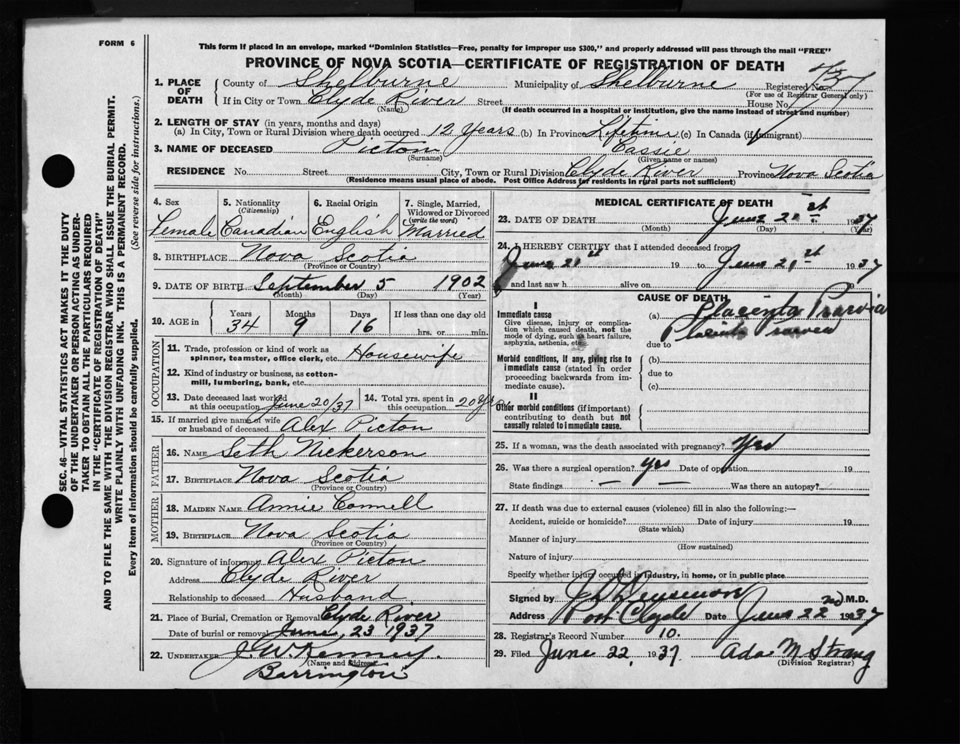 FORM 6
This form if placed in an envelope, marked "Dominion Statistics—Free, penalty for improper use $300," and properly addressed will pass through the mail "FREE"
PROVINCE OF NOVA SCOTIA—CERTIFICATE OF REGISTRATION OF DEATH
1. PLACE OF DEATH
County of Shelburne Municipality of Shelburne Registered No.
(For use of Registrar General only)
If in City or Town Clyde River Street House No.
(Name) (If death occurred in a hospital or institution, give the name instead of street and number)
2. LENGTH OF STAY (in years, months and days)
(a) In City, Town or Rural Division where death occurred 12 Years (b) In Province Lifetime (c) In Canada (if immigrant)
3. NAME OF DECEASED Picton Cassie
(Surname) (Given name or names)
RESIDENCE No. Street City, Town or Rural Division Clyde River Province Nova Scotia
(Residence means usual place of abode. Post Office Address for residents in rural parts not sufficient)
SEC. 46—VITAL STATISTICS ACT MAKES IT THE DUTY
OF THE UNDERTAKER OR PERSON ACTING AS UNDER-
TAKER TO OBTAIN ALL THE PARTICULARS REQUIRED
IN THE "CERTIFICATE OF REGISTRATION OF DEATH"
AND TO FILE THE SAME WITH THE DIVISION REGISTRAR WHO SHALL ISSUE THE BURIAL PERMIT.
WRITE PLAINLY WITH UNFADING INK. THIS IS A PERMANENT RECORD.
Every item of information should be carefully supplied. (See reverse side for instructions.)
4. Sex 5. Nationality (Citizenship) 6. Racial Origin 7. Single, Married, Widowed or Divorced (write the word)
Female Canadian English Married
8. BIRTHPLACE Nova Scotia
(Province or Country)
9. DATE OF BIRTH September 5 1902
(Month) (Day) (Year)
10. AGE in Years Months Days If less than one day old
34 9 16 hrs. or min.
OCCUPATION
11. Trade, profession or kind of work as spinner, teamster, office clerk, etc. Housewife
12. Kind of industry or business, as cotton-mill, lumbering, bank, etc.
13. Date deceased last worked at this occupation June 20/37 14. Total yrs. spent in this occupation 20 Yrs
15. If married give name of wife or husband of deceased Alex Picton
FATHER
16. NAME Seth Nickerson
17. BIRTHPLACE Nova Scotia
(Province or Country)
MOTHER
18. MAIDEN NAME Annie Connell
19. BIRTHPLACE Nova Scotia
(Province or Country)
20. Signature of informant Alex Picton
Address Clyde River
Relationship to deceased Husband
21. Place of Burial, Cremation or Removal Clyde River
Date of burial or removal June, 23 1937
22. UNDERTAKER J. W. Kenney
(Name and Address)
Barrington
MEDICAL CERTIFICATE OF DEATH
23. DATE OF DEATH June 21st 1937
(Month) (Day) (Year)
24. I HEREBY CERTIFY that I attended deceased from
June 21st 19 to June 21st 1937
and last saw h alive on
CAUSE OF DEATH
I
Immediate cause
Give disease, injury or complication which caused death, not the mode of dying, such as heart failure, asphyxia, asthenia, etc.
(a) Placenta Praevia
due to
Morbid conditions, if any, giving rise to immediate cause (stated in order proceeding backwards from immediate cause).
(b)
due to
(c)
II
Other morbid conditions (if important) contributing to death but not causally related to immediate cause.
25. If a woman, was the death associated with pregnancy? Yes
26. Was there a surgical operation? yes Date of operation 19
State findings — — Was there an autopsy?
27. If death was due to external causes (violence) fill in also the following:—
Accident, suicide or homicide? Date of injury 19
(State which)
Manner of injury
(How sustained)
Nature of injury
Specify whether injury occurred in industry, in home, or in public place
Signed by M.D.
Address Port Clyde Date June 22 1937
28. Registrar's Record Number 10.
29. Filed June 22, 1937 Ada M Strang
(Division Registrar)